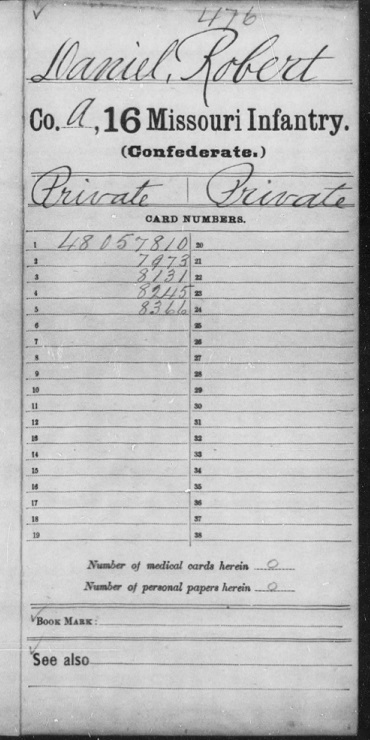 476
Daniel, Robert
Co. A, 16 Missouri Infantry.
(Confederate.)
Private | Private
CARD NUMBERS.
1 48057810 20
2 7973 21
3 8131 22
4 8245 23
5 8366 24
6 25
7 26
8 27
9 28
10 29
11 30
12 31
13 32
14 33
15 34
16 35
17 36
18 37
19 38
Number of medical cards herein 0
Number of personal papers herein 0
BOOK MARK:
See also